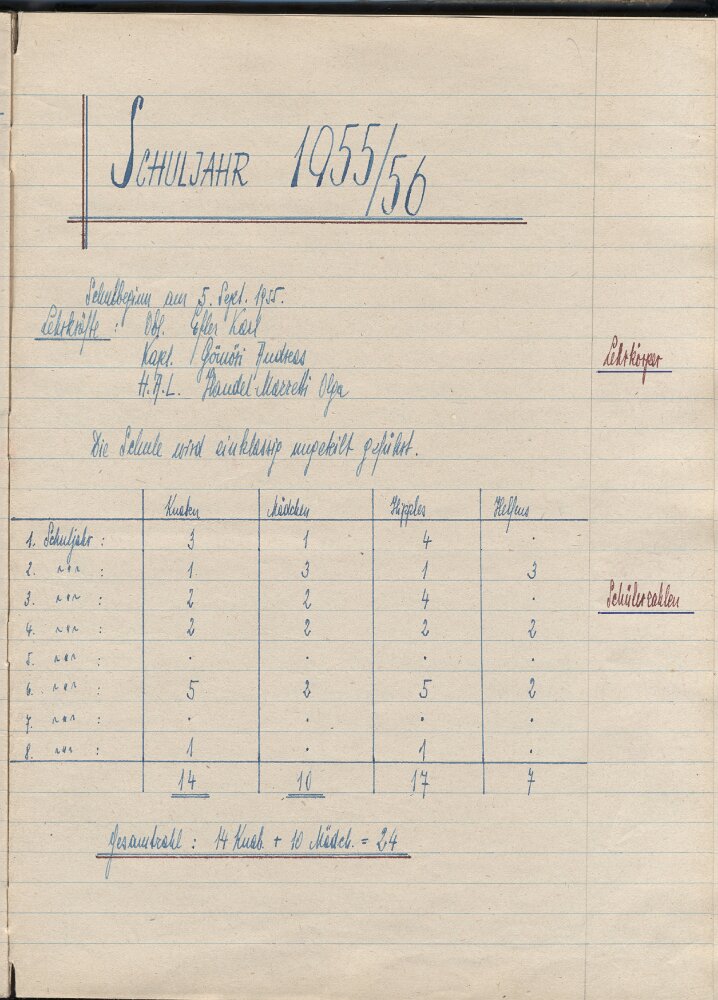 SCHULJAHR 1955/56
Schulbeginn am 5. Sept. 1955.
Lehrkräfte : Obl. Karl
Lehrkörper
Kapl. Gömöri Andreas
H.A.L. Olga
Die Schule wird einklassig ungeteilt geführt.
Knaben Mädchen Hipples Helfens
1. Schuljahr : 3 1 4 .
2. " " " : 1 3 1 3
3. " " " : 2 2 4 .
Schülerzahlen
4. " " " : 2 2 2 2
5. " " " : . . . .
6. " " " : 5 2 5 2
7. " " " : . . . .
8. " " " : 1 . 1 .
14 10 17 7
Gesamtzahl : 14 Knab. + 10 Mädch. = 24